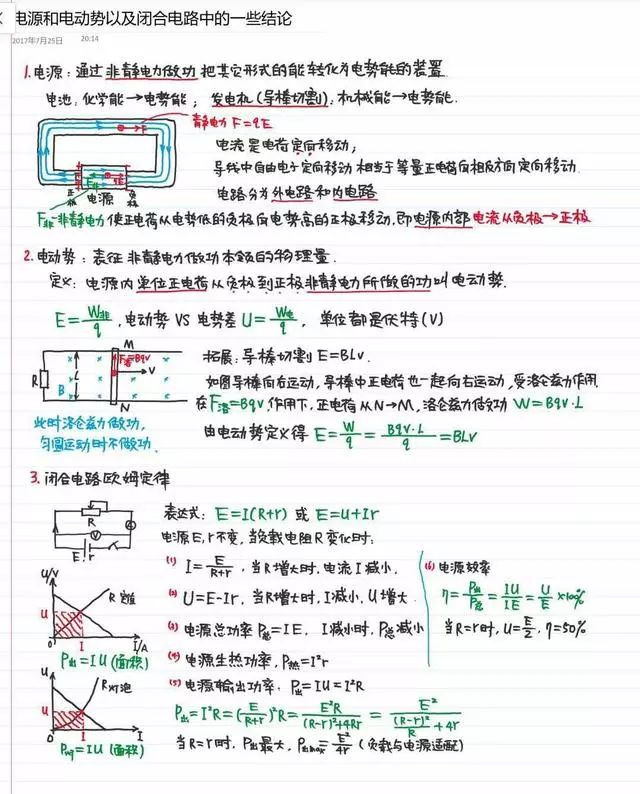 电源和电动势以及闭合电路中的一些结论
2017年7月25日 20:14
1. 电源：通过非静电力做功把其它形式的能转化为电势能的装置
电池：化学能→电势能；发电机(导棒切割)：机械能→电势能.
静电力 F=qE
电流是电荷定向移动；
导线中自由电子定向移动相当于等量正电荷向相反方向定向移动.
电路分为外电路和内电路
正极 电源 负极
F非
F非-非静电力使正电荷从电势低的负极向电势高的正极移动.即电源内部电流从负极→正极
2. 电动势：表征非静电力做功本领的物理量.
定义：电源内单位正电荷从负极到正极非静电力所做的功叫电动势.
E=W非/q，电动势 VS 电势差 U=W电/q，单位都是伏特(V)
M
F洛=Bqv
R B L V
N
拓展：导棒切割 E=BLv.
如图导棒向右运动，导棒中正电荷也一起向右运动，受洛仑兹力作用
在F洛=Bqv作用下，正电荷从N→M，洛仑兹力做功 W=Bqv·L
由电动势定义得 E=W/q=Bqv·L/q=BLv
此时洛仑兹力做功，
匀圆运动时不做功.
3. 闭合电路欧姆定律
R
V
A
E r
表达式：E=I(R+r) 或 E=U+Ir
电源E,r不变，当负载电阻R变化时：
(1) I=E/(R+r)，当R增大时，电流I减小.
(2) U=E-Ir，当R增大时，I减小，U增大
(3) 电源总功率 P总=IE，I减小时，P总减小
(4) 电源生热功率，P热=I²r
(5) 电源输出功率：P出=IU=I²R
P出=I²R=(E/(R+r))²R=E²R/((R-r)²+4Rr)=E²/((R-r)²/R+4r)
当R=r时，P出最大，P出max=E²/4r (负载与电源适配)
(6) 电源效率
η=P出/P总=IU/IE=U/E×100%
当R=r时，U=E/2，η=50%
U/V
R定值
U
0 I I/A
P出=IU (面积)
U
R灯泡
U
0 I I
=IU (面积)